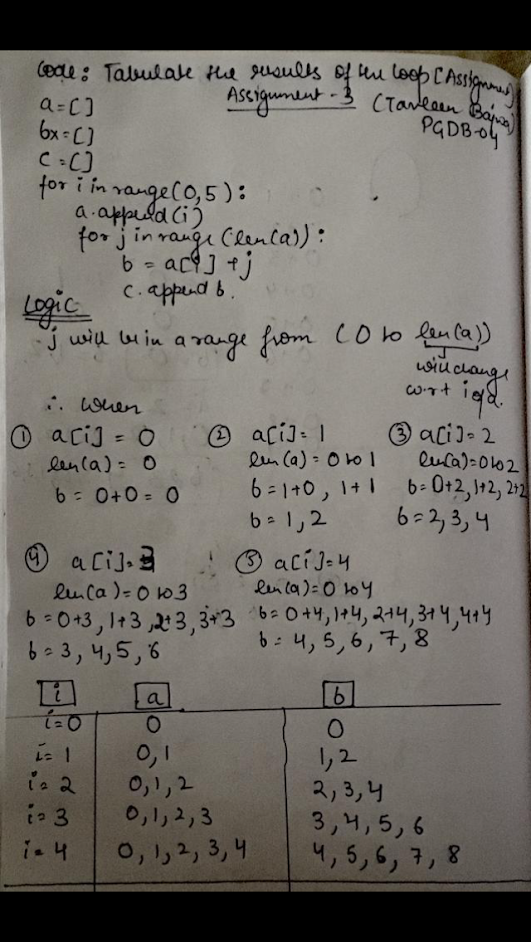 Code: Tabulate the results of the loop [Assignment]
Assignment - 3 (Tanleen Bajwa)
PGDB-04
a=[]
bx=[]
c=[]
for i in range(0,5):
a.append(i)
for j in range (len(a)):
b = a[i] + j
c.append b.
Logic
j will be in a range from (0 to len(a))
will change
w.r.t i of a.
∴ when
① a[i] = 0
len(a) = 0
b = 0+0 = 0
② a[i] = 1
len(a) = 0 to 1
b = 1+0, 1+1
b = 1, 2
③ a[i] = 2
len(a)=0 to 2
b = 0+2, 1+2, 2+2
b = 2, 3, 4
④ a[i] = 3
len(a) = 0 to 3
b = 0+3, 1+3, 2+3, 3+3
b = 3, 4, 5, 6
⑤ a[i]=4
len(a)=0 to 4
b = 0+4, 1+4, 2+4, 3+4, 4+4
b = 4, 5, 6, 7, 8
i a b
i=0 0 0
i=1 0,1 1,2
i=2 0,1,2 2,3,4
i=3 0,1,2,3 3,4,5,6
i=4 0,1,2,3,4 4,5,6,7,8